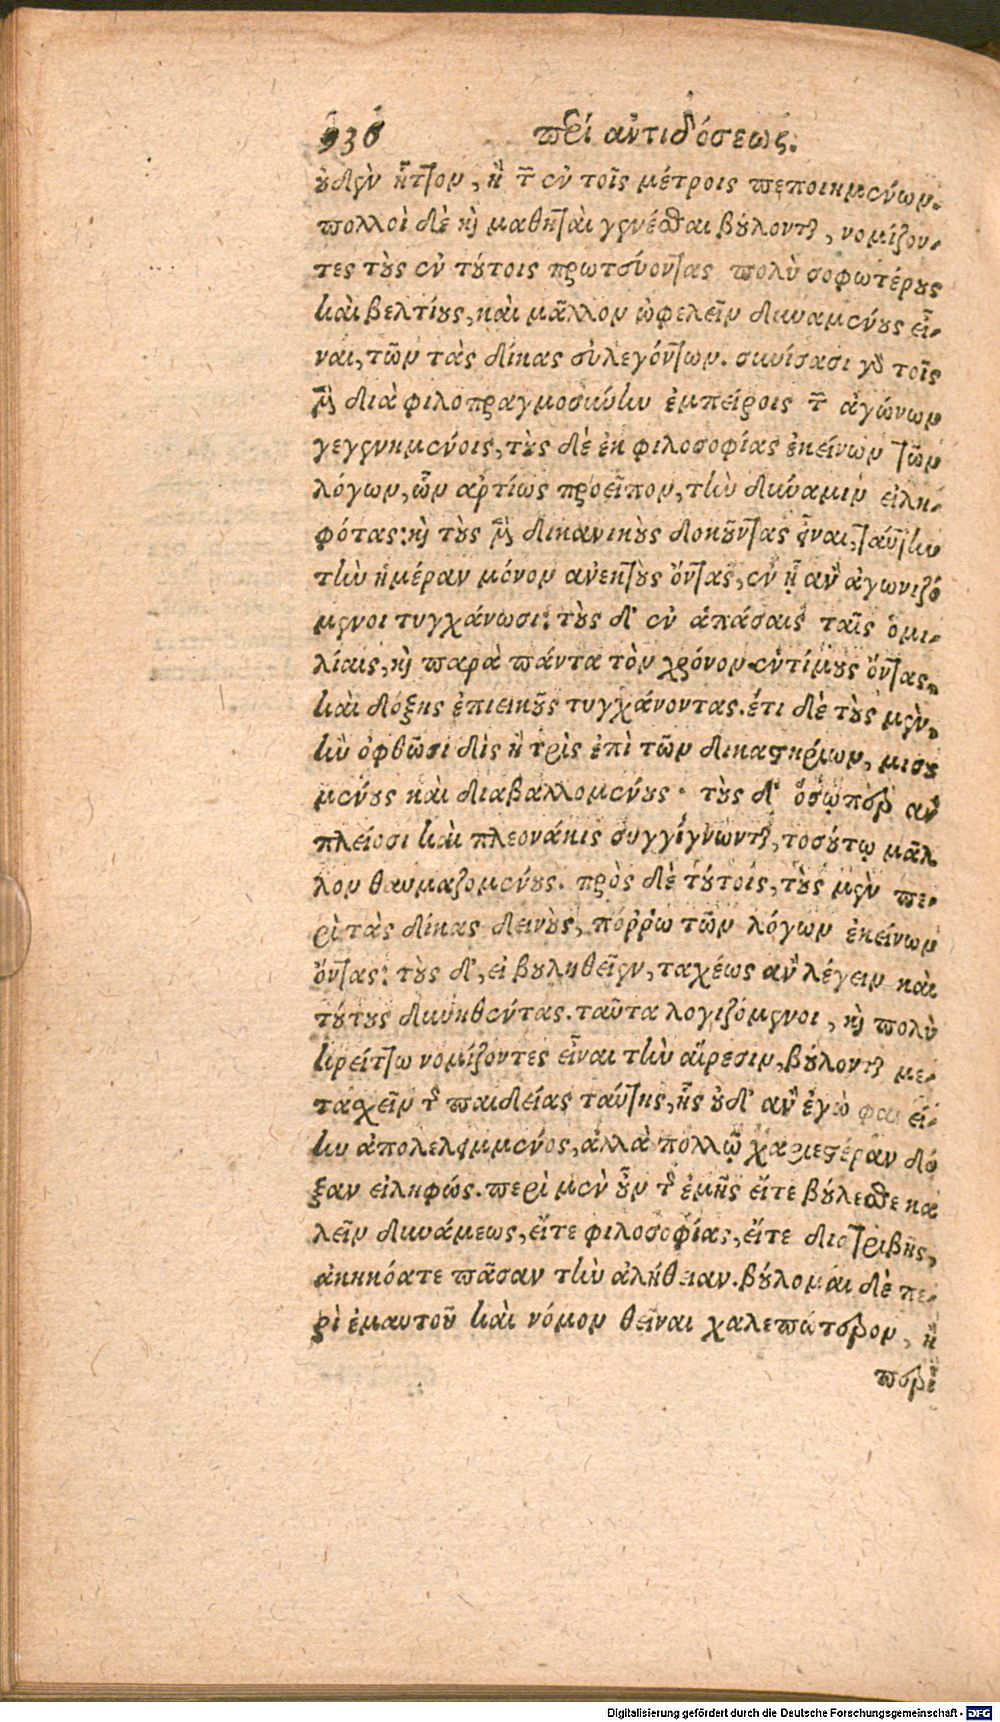 936 περὶ ἀντιδόσεως.
οὐδὲν ἧττον, ἢ τῶν ἐν τοῖς μέτροις πεποιημένων.
πολλοὶ δὲ καὶ μαθηταὶ γενέσθαι βούλονται, νομίζον-
τες τοὺς ἐν τούτοις πρωτεύοντας πολὺ σοφωτέρους
καὶ βελτίους, καὶ μᾶλλον ὠφελεῖν δυναμένους εἶ-
ναι, τῶν τὰς δίκας εὐλεγόντων. συνίσασι γὰρ τοῖς
μὲν διὰ φιλοπραγμοσύνην ἐμπείροις τῶν ἀγώνων
γεγενημένοις, τοὺς δὲ ἐκ φιλοσοφίας ἐκείνων τῶν
λόγων, ὧν ἀρτίως προεῖπον, τὴν δύναμιν εἰλη-
φότας: καὶ τοὺς μὲν δικανικοὺς δοκοῦντας εἶναι, ταύτην
τὴν ἡμέραν μόνον ἀνεκτοὺς ὄντας, ἐν ᾗ ἂν ἀγωνιζό
μενοι τυγχάνωσι: τοὺς δ' ἐν ἁπάσαις ταῖς ὁμι-
λίαις, καὶ παρὰ πάντα τὸν χρόνον ἐντίμους ὄντας,
καὶ δόξης ἐπιεικοῦς τυγχάνοντας. ἔτι δὲ τοὺς μὲν,
ἢν ὀφθῶσι δὶς ἢ τρὶς ἐπὶ τῶν δικαστηρίων, μισου
μένους καὶ διαβαλλομένους · τοὺς δ' ὅσῳπερ ἂν
πλείοσι καὶ πλεονάκις συγγίγνωνται, τοσούτῳ μᾶλ
λον θαυμαζομένους. πρὸς δὲ τούτοις, τοὺς μὲν πε-
ρὶ τὰς δίκας δεινοὺς, πόῤῥω τῶν λόγων ἐκείνων
ὄντας: τοὺς δ', εἰ βουληθεῖεν, ταχέως ἂν λέγειν καὶ
τούτους δυνηθέντας. ταῦτα λογιζόμενοι, καὶ πολὺ
κρείττω νομίζοντες εἶναι τὴν αἵρεσιν, βούλονται με-
τασχεῖν τῆς παιδείας ταύτης, ἧς οὐδ' ἂν ἐγὼ φα εί-
ην ἀπολελειμμένος, ἀλλὰ πολλῷ χαριεστέραν δό
ξαν εἰληφώς. περὶ μὲν οὖν τῆς ἐμῆς εἴτε βούλεσθε κα
λεῖν δυνάμεως, εἴτε φιλοσοφίας, εἴτε διατριβῆς,
ἀκηκόατε πᾶσαν τὴν ἀλήθειαν. βούλομαι δὲ πε-
ρὶ ἐμαυτοῦ καὶ νόμον θεῖναι χαλεπώτερον, ἢ
περὶ
Digitalisierung gefördert durch die Deutsche Forschungsgemeinschaft - DFG